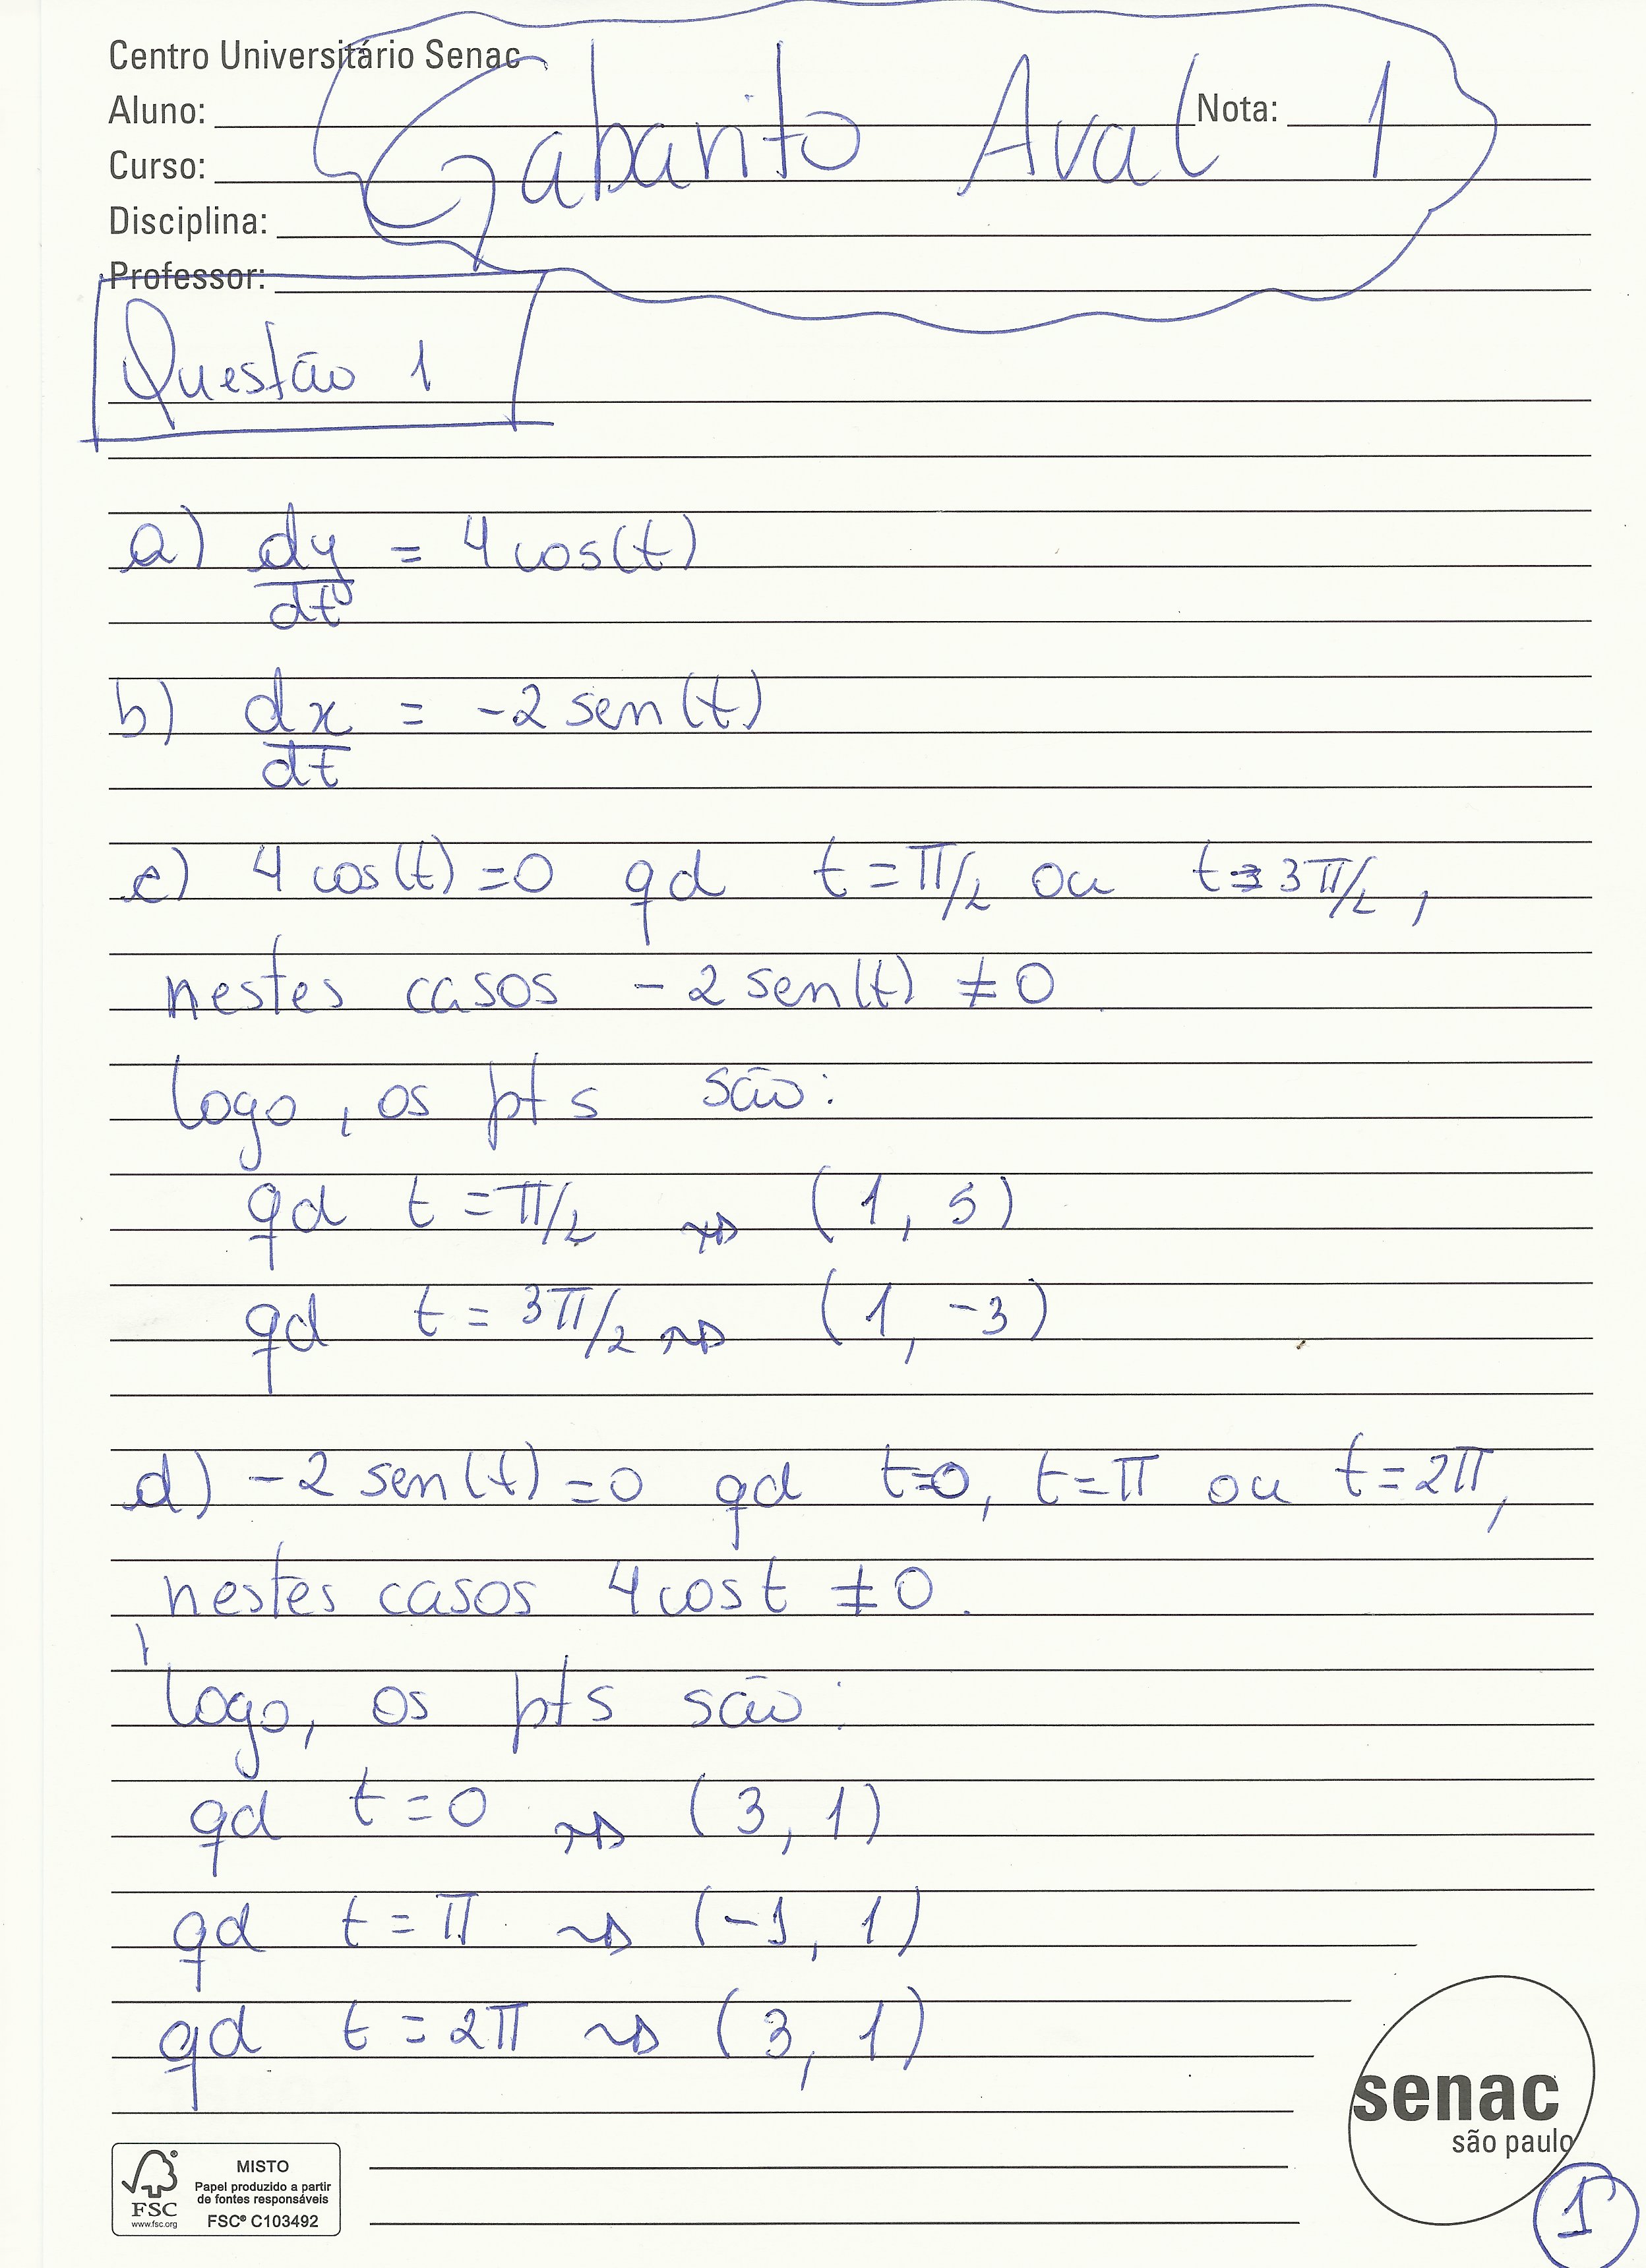 Centro Universitário Senac
Aluno: Nota:
Curso:
Disciplina:
Professor:
Gabarito Aval 1
Questão 1
a) dy/dt = 4 cos(t)
b) dx/dt = -2 sen(t)
c) 4 cos(t) = 0 qd t = π/2 ou t = 3π/2,
nestes casos -2 sen(t) ≠ 0
logo, os pts são:
qd t = π/2 ⇝ (1, 5)
qd t = 3π/2 ⇝ (1, -3)
d) -2 sen(t) = 0 qd t=0, t=π ou t=2π,
nestes casos 4cost ≠ 0.
logo, os pts são:
qd t = 0 ⇝ (3, 1)
qd t = π ⇝ (-1, 1)
qd t = 2π ⇝ (3, 1)
senac
são paulo
FSC
www.fsc.org
MISTO
Papel produzido a partir
de fontes responsáveis
FSC® C103492
1